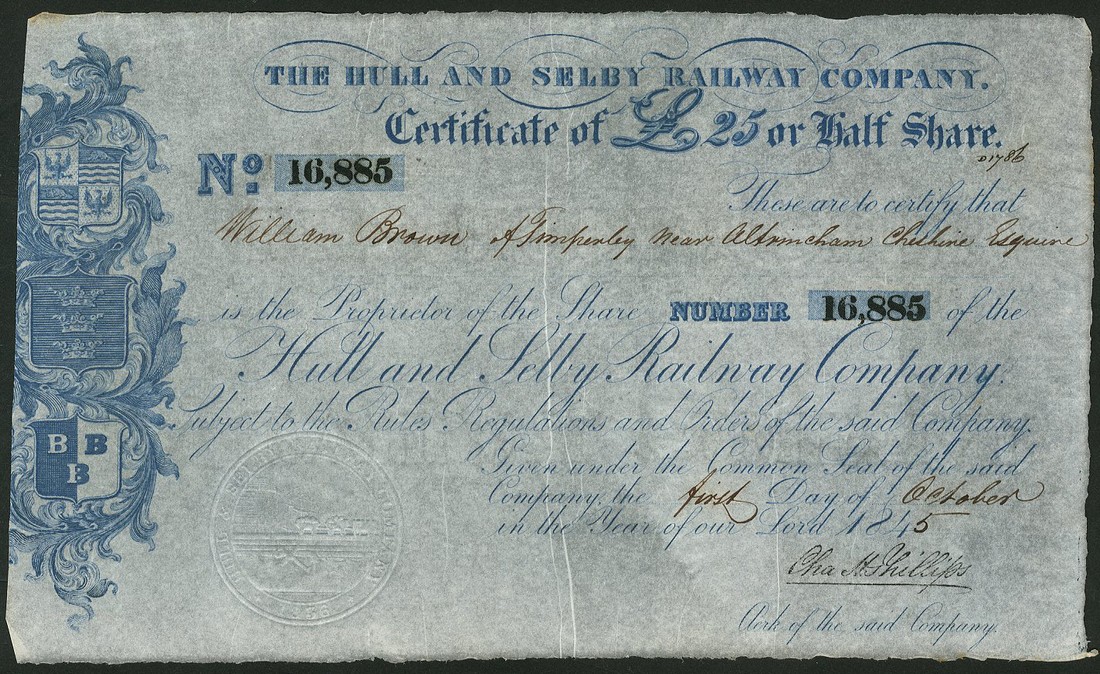 THE HULL AND SELBY RAILWAY COMPANY.
Certificate of £ 25 or Half Share.
D1786
No. 16,885
These are to certify that
William Brown of Timperley near Altrincham Cheshire Esquire
is the Proprietor of the Share NUMBER 16,885 of the
Hull and Selby Railway Company.
Subject to the Rules Regulations and Orders of the said Company.
Given under the Common Seal of the said
Company, the first Day of October
in the Year of our Lord 1845
Cha H Phillips
Clerk of the said Company.
B B
B